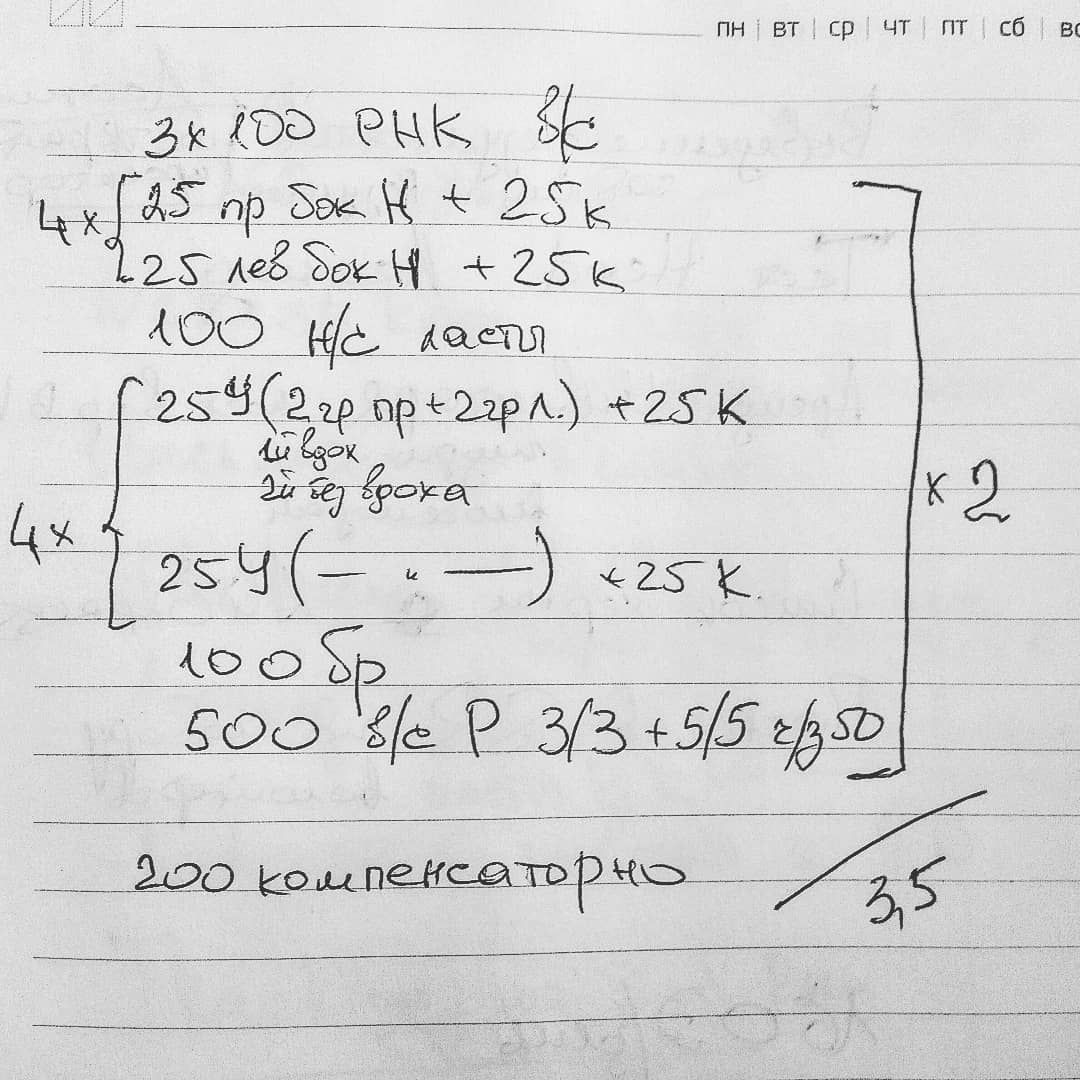 пн | вт | ср | чт | пт | сб | вс
3х100 РНК в/с
4х 25 пр бок Н + 25к
25 лев бок Н + 25к
100 н/с ласты
25У (2гр пр + 2гр л.) + 25К
1й вдох
2й без вдоха
4х
25У (— " —) + 25К
х 2
100 бр
500 в/с Р 3/3 + 5/5 ч/з 50
200 компенсаторно
3,5